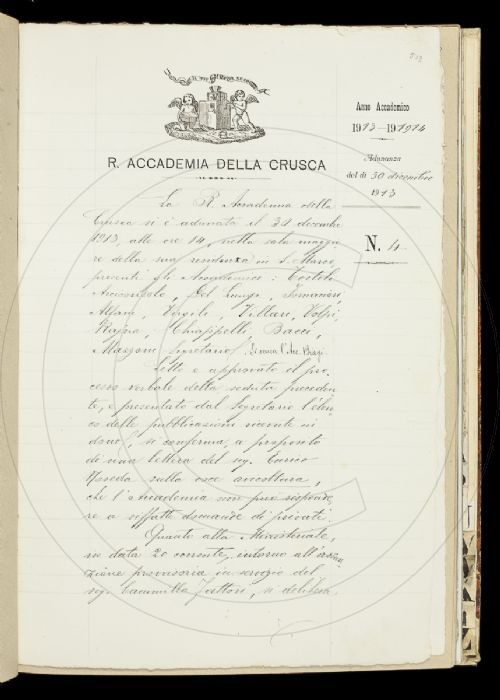 R. ACCADEMIA DELLA CRUSCA
Anno Accademico
1913-191914
Adunanza
del dì 30 dicembre
1913
N. 4.
La R. Accademia della
Crusca si è adunata il 30 decembre
1913, alle ore 14, nella sala maggio-
re della sua residenza in S. Marco,
presenti gli Accademici: Tortoli,
Arcivescovo, Del Lungo, Tommasini,
Alfani, Vergili, Villari, Volpi,
Rajna, Chiappelli, Bacci,
Mazzoni Segretario. Si scusa l'Acc. Biagi.
Letto e approvato il pro-
cesso verbale della seduta preceden-
te, e presentato dal Segretario l'elen-
co delle pubblicazioni ricevute in
dono, si conferma, a proposito
di una lettera del sig. Enrico
sulla voce
che l'Accademia non può risponde-
re a siffatte domande di privati.
Quanto alla Ministeriale,
in data 20 corrente, intorno all'
zione provvisoria in servizio del
sig. Cacamilla Fattori, si delibera,